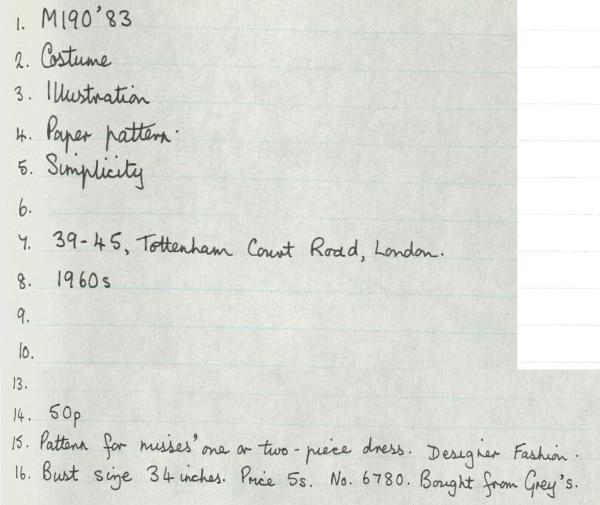 1. M190'83
2. Costume
3. Illustration
4. Paper pattern.
5. Simplicity
6.
7. 39-45, Tottenham Court Road, London.
8. 1960s
9.
10.
13.
14. 50p
15. Pattern for misses' one or two-piece dress. Designer Fashion.
16. Bust size 34 inches. Price 5s. No. 6780. Bought from Grey's.